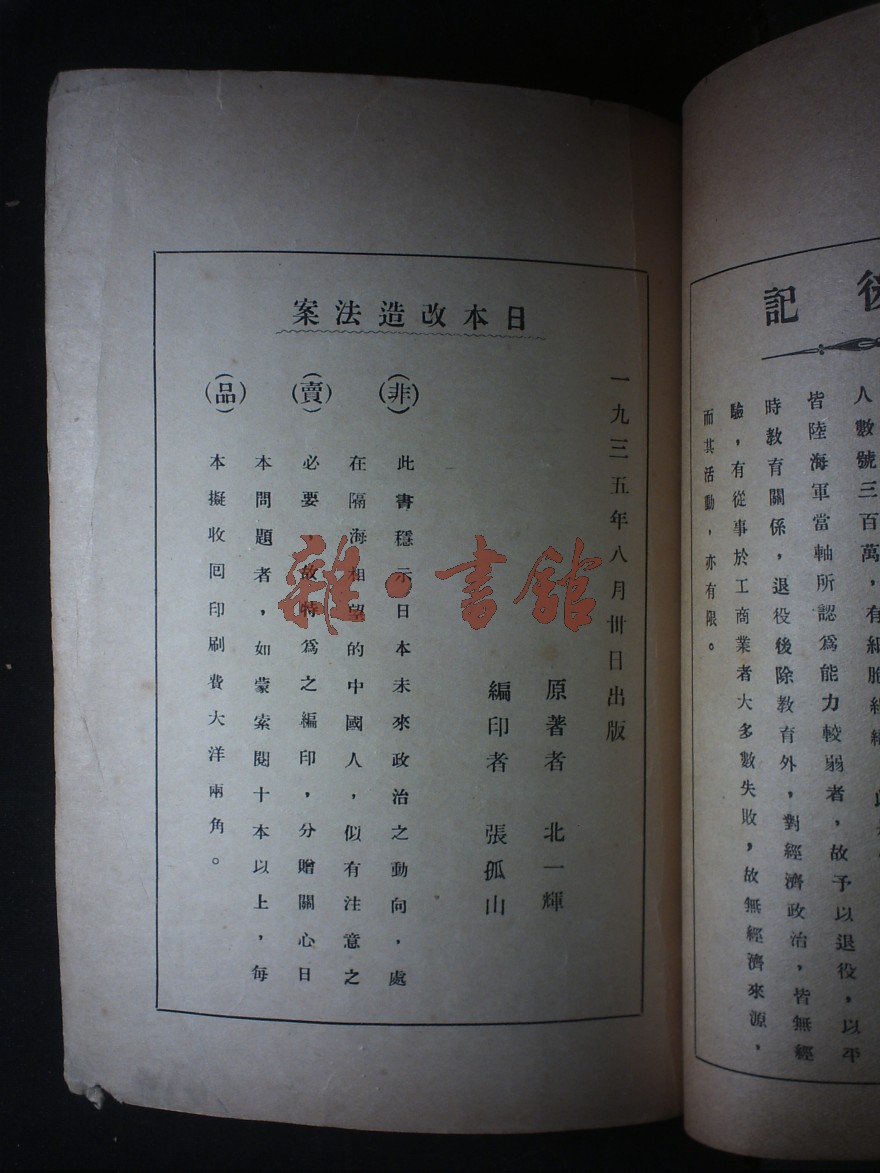 後記
人數號三百萬，有細胞
皆陸海軍當軸所認爲能力較弱者，故予以退役，以平
時教育關係，退役後除教育外，對經濟政治，皆無經
驗，有從事於工商業者大多數失敗，故無經濟來源，
而其活動，亦有限。
日本改造法案
一九三五年八月卅日出版
原著者 北一輝
編印者 張孤山
(非)(賣)(品)
此書穩示日本未來政治之動向，處
在隔海相望的中國人，似有注意之
必要，故特爲之編印，分贈關心日
本問題者，如蒙索閱十本以上，每
本擬收囘印刷費大洋兩角。
雜·書館